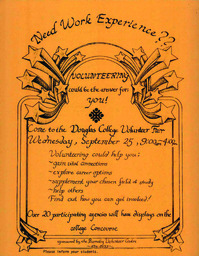 Need Work Experience??
VOLUNTEERING
could be the answer for
you!
Come to the Douglas College Volunteer Fair
Wednesday, September 25, 9:00-4:00
Volunteering could help you:
-gain vital connections
-explore career options
-supplement your chosen field of study
-help others
Find out how you can get involved!
Over 20 participating agencies will have displays on the
college Concourse
sponsored by the Burnaby Volunteer Centre
Please inform your students.